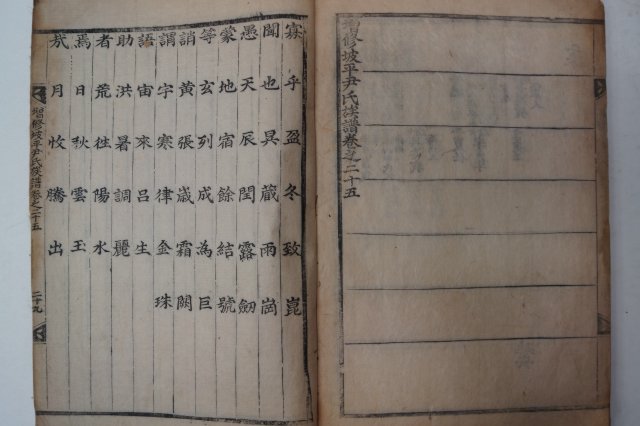 增修坡平尹氏族譜卷之二十五
寡乎盈冬致崑
聞也昃藏雨崗
愚天辰閏露劒
蒙地宿餘結號
等玄列成為巨
誚黃張歲霜闕
謂宇寒律金珠
語宙來呂生
助洪暑調麗
者荒往陽水
焉日秋雲玉
哉月收騰出
增修坡平尹氏族譜卷之二十五
二十九